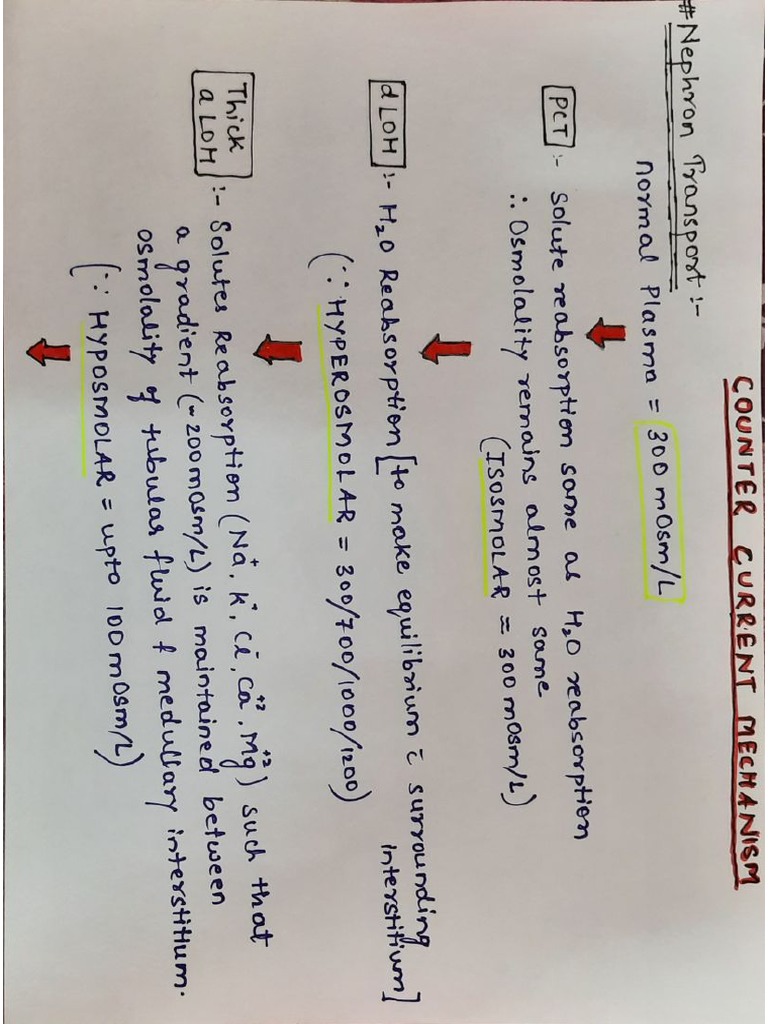 COUNTER CURRENT MECHANISM
#Nephron Transport :-
normal Plasma = 300 mOsm/L
PCT :- Solute reabsorption same as H₂O reabsorption
∴ Osmolality remains almost same
(ISOSMOLAR = 300 mOsm/L)
dLOH :- H₂O Reabsorption [to make equilibrium c̄ surrounding
interstitium]
(∵ HYPEROSMOLAR = 300/700/1000/1200)
Thick
aLOH :- Solutes Reabsorption (Na⁺, K⁺, Cl⁻, Ca⁺², Mg⁺²) such that
a gradient (~200mosm/L) is maintained between
osmolality of tubular fluid & medullary interstitium.
(∵ HYPOSMOLAR = upto 100 mOsm/L)